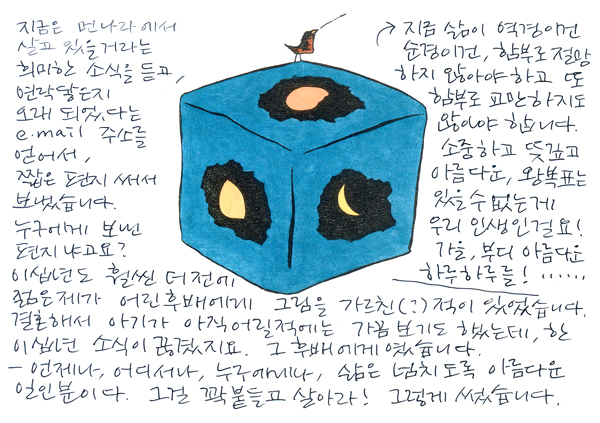 지금은 먼나라에서
살고 있을거라는
희미한 소식을 듣고,
연락닿은지
오래 되었다는
e.mail 주소를
얻어서,
짧은 편지 써서
보냈습니다.
누구에게 보낸
편지냐고요?
이십년도 훨씬 더 전에
젊은제가 어린후배에게 그림을 가르친(?)적이 있었습니다.
결혼해서 아기가 아직어릴적에는 가끔 보기도 했는데, 한
이십년 소식이 끊겼지요. 그 후배에게였습니다.
- 언제나, 어디서나, 누구에게나, 삶은 넘치도록 아름다운
일인분이다. 그걸 꽉붙들고 살아라! 그렇게 썼습니다.
지금 삶이 역경이건
순경이건, 함부로 절망
하지 않아야 하고 또
함부로 교만하지도
않아야 합니다.
소중하고 뜻깊고
아름다운, 왕복표는
있을 수 없는게
우리 인생인걸요!
가을, 부디 아름다운
하루하루를! ......